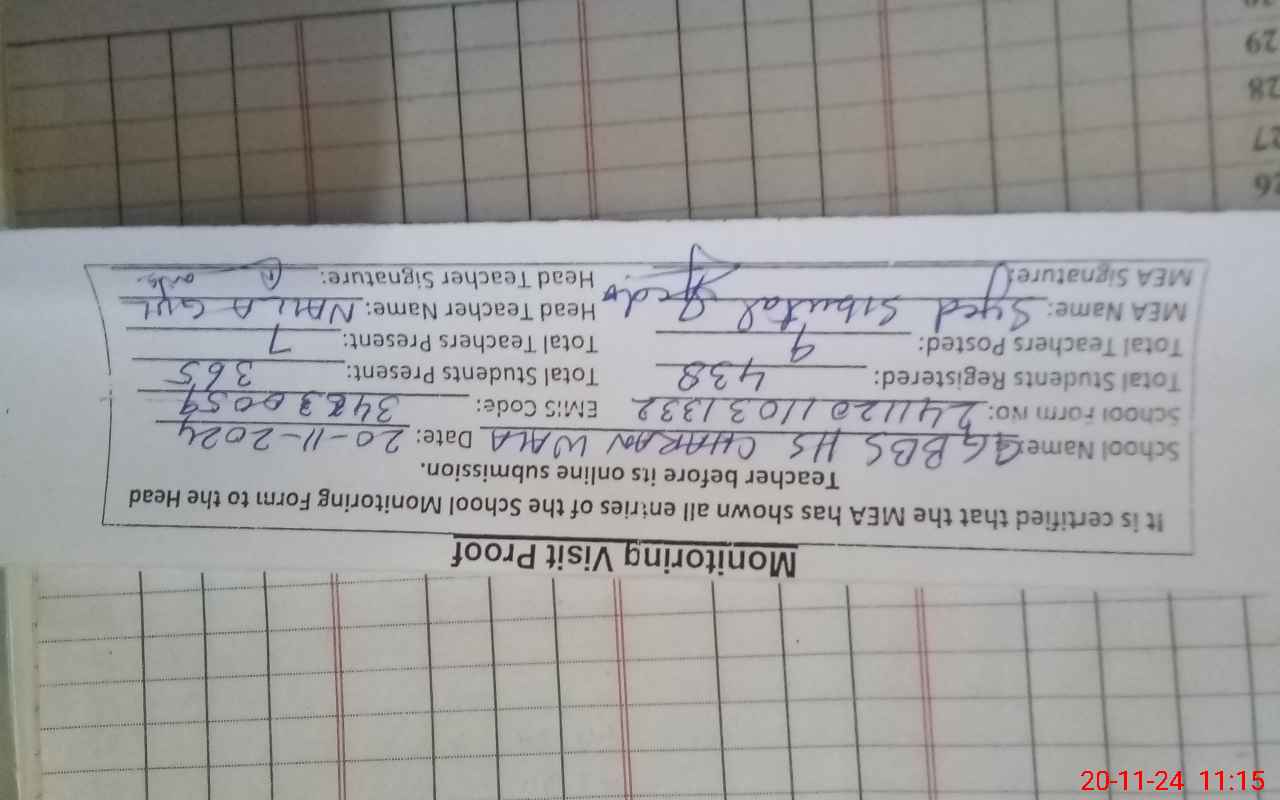 Monitoring Visit Proof
It is certified that the MEA has shown all entries of the School Monitoring Form to the Head
Teacher before its online submission.
School Name: GGBBS HS CHARAN WALA Date: 20-11-2024
School Form No: 24112011031332 EMIS Code: 34330059
Total Students Registered: 438 Total Students Present: 365
Total Teachers Posted: 9 Total Teachers Present: 7
MEA Name: Syed Head Teacher Name: NAILA GUL
MEA Signature: Head Teacher Signature:
26
27
28
29
20-11-24 11:15